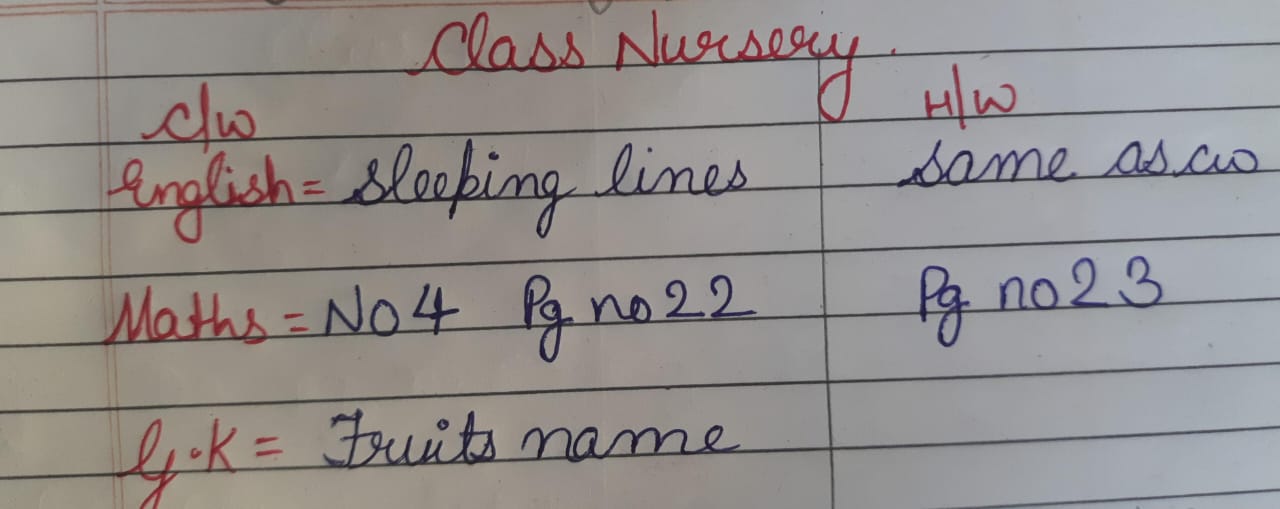 Class Nursery.
C/W H/W
English = Sleeping lines same as cw
Maths = No 4 Pg no 22 Pg no 23
G.K = Fruits name